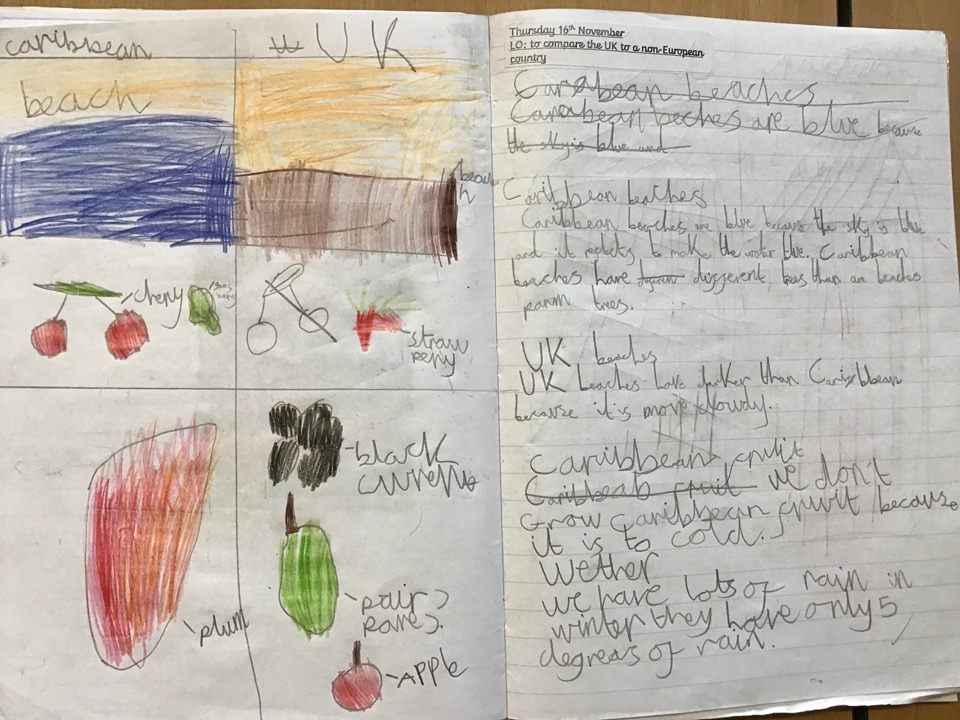 caribbean
the UK
beach
beach
cherry
goosberry
straw
rerry
black
currents
plum
pair?
pare?
Apple
Thursday 16th November
LO: to compare the UK to a non-European
country
Carabean beaches
Carabean beches are blue because
the sky is blue and
Caribbean beaches
Caribbean beaches are blue because the sky is blue
and it replects to make the water blue. Caribbean
beaches have diggerent trees than are beaches
parm trees.
UK beaches
UK beaches have darker than Caribbean
because it is more clowdy.
Caribbean fruit
Caribbeab fruit we don't
Grow caribbean fruit because
it is to cold.
Wether
we have lots of rain in
winter they have only 5
degreas of rain.